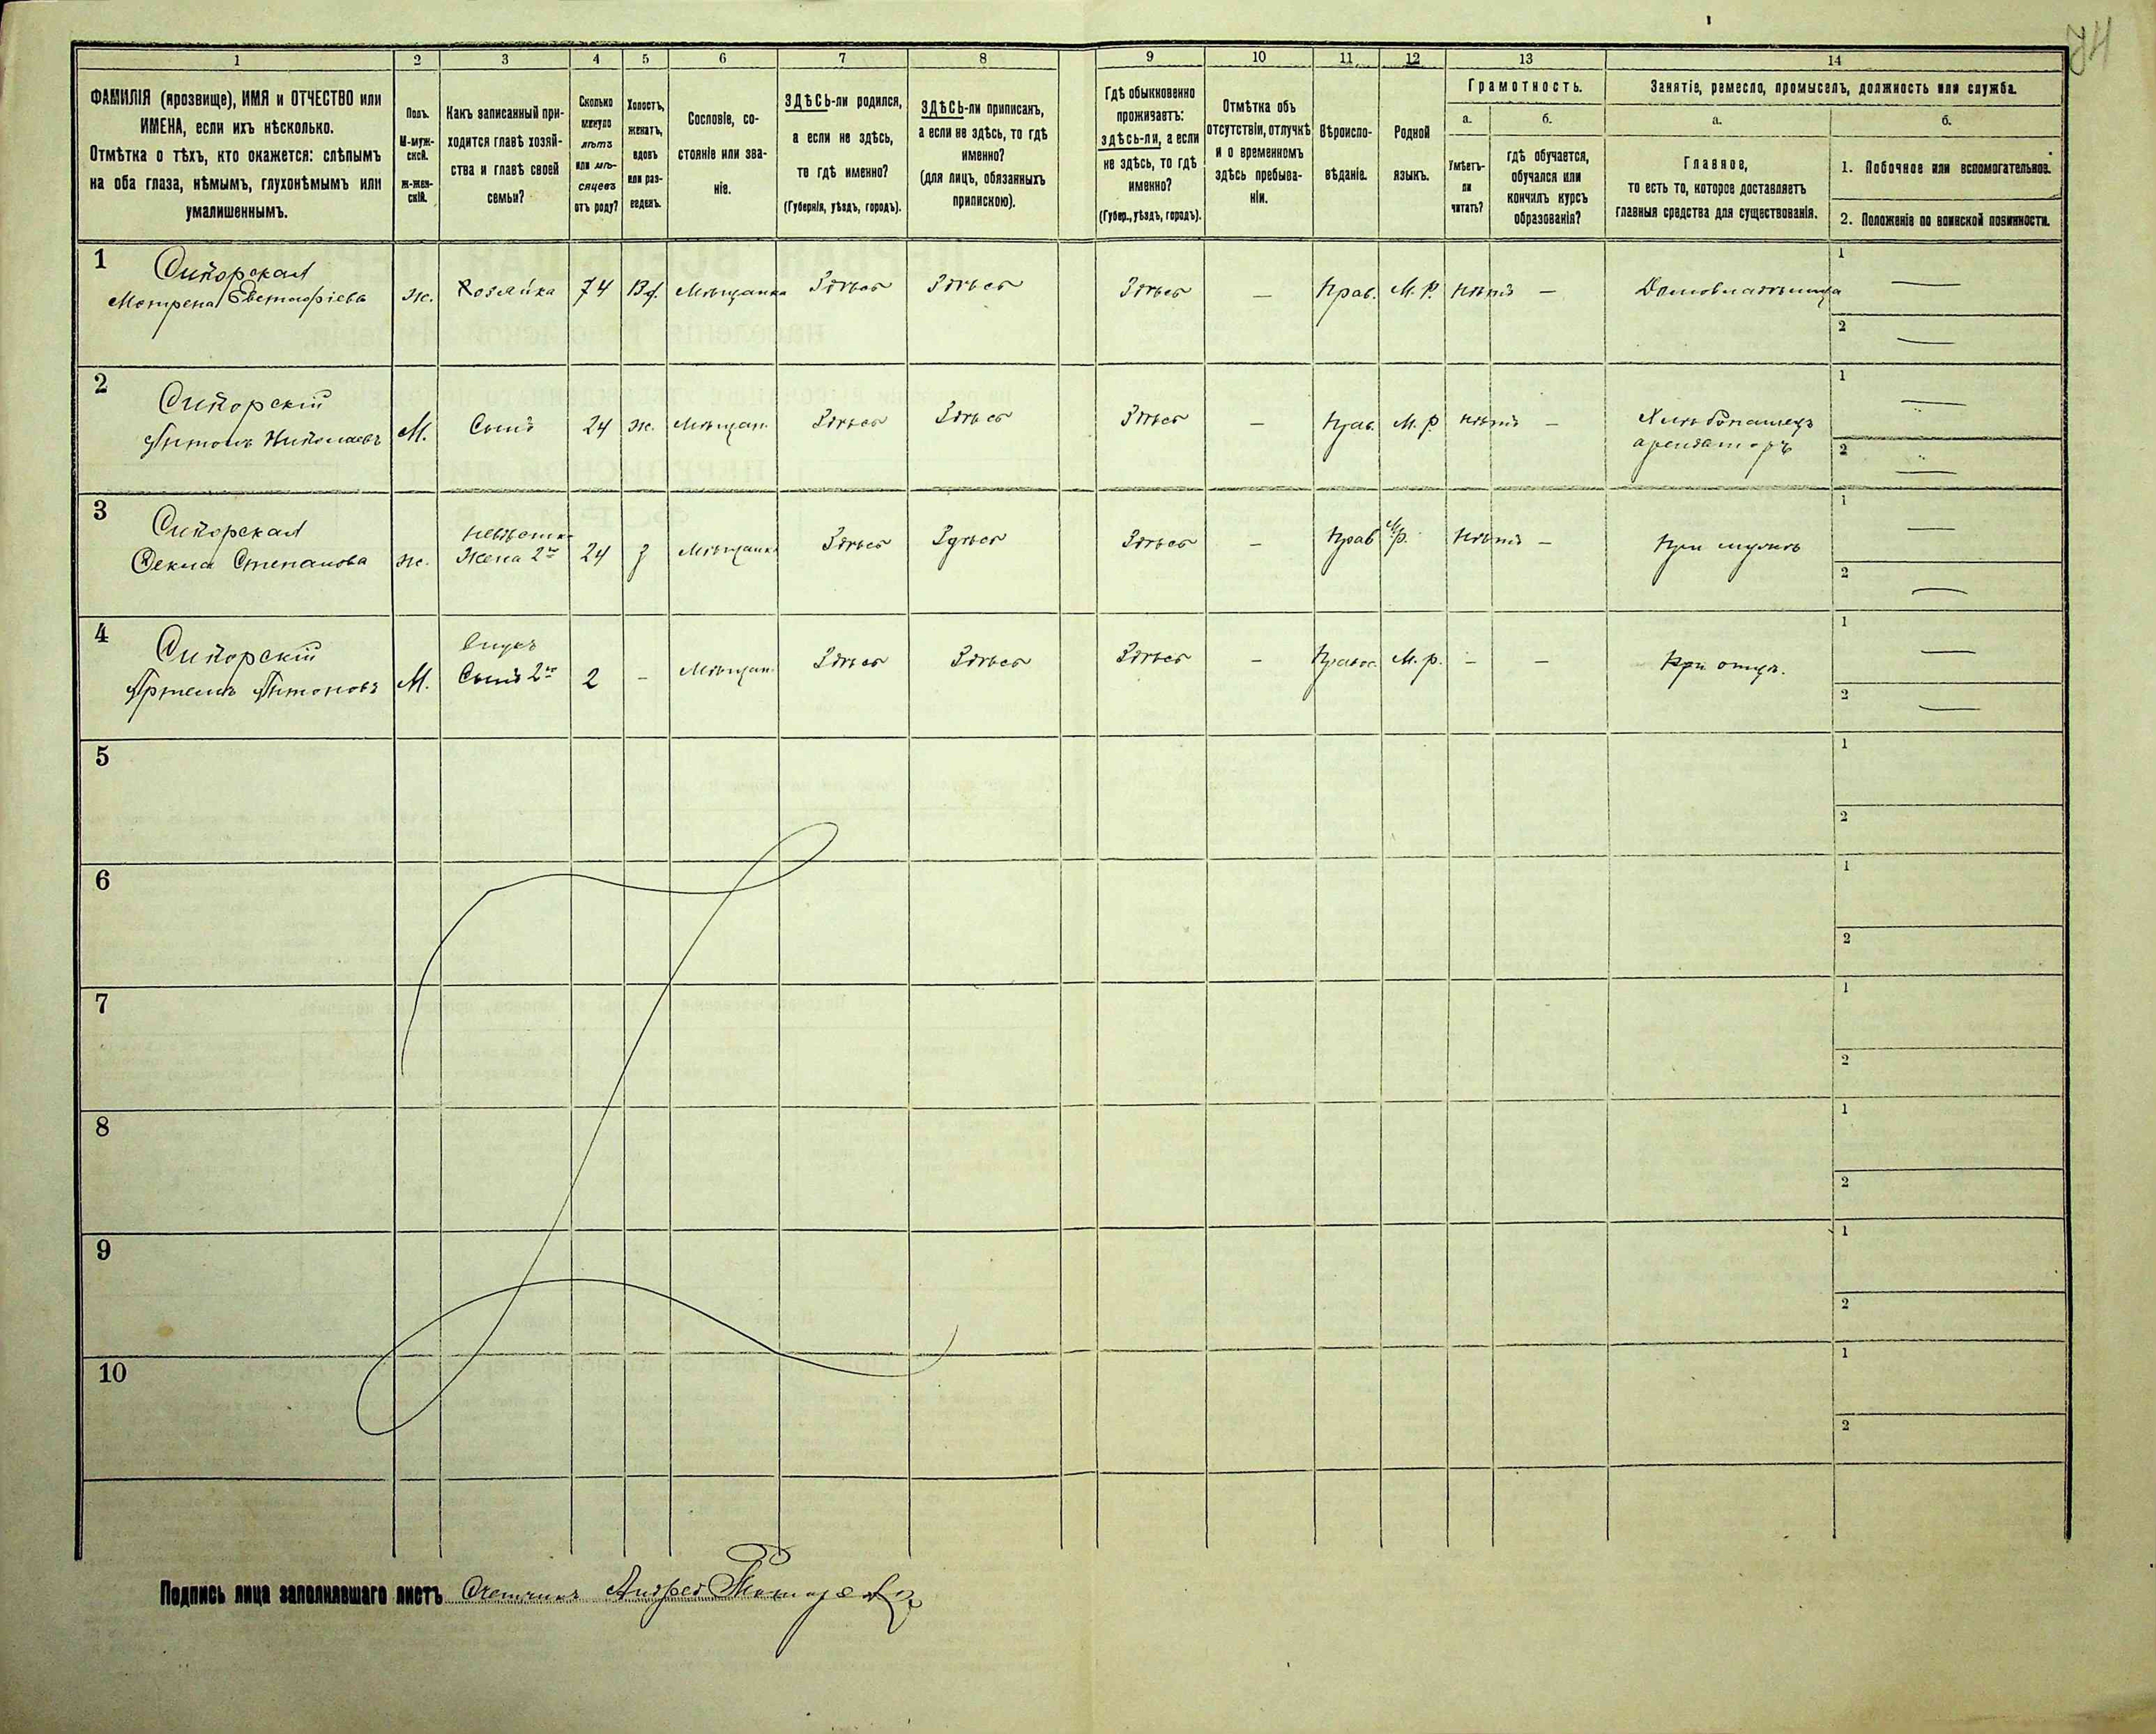 1 2 3 4 5 6 7 8 9 10 11 12 13 14
ФАМИЛІЯ (прозвище), ИМЯ и ОТЧЕСТВО или
ИМЕНА, если ихъ нѣсколько.
Отмѣтка о тѣхъ, кто окажется: слѣпымъ
на оба глаза, нѣмымъ, глухонѣмымъ или
умалишеннымъ.
Полъ.
М-муж-
ской.
ж-жен-
скій.
Какъ записанный при-
ходится главѣ хозяй-
ства и главѣ своей
семьи?
Сколько
минуло
лѣтъ
или мѣ-
сяцевъ
отъ роду?
Холостъ,
женатъ,
вдовъ
или раз-
веденъ.
Сословіе, со-
стояніе или зва-
ніе.
ЗДѢСЬ-ли родился,
а если не здѣсь,
то гдѣ именно?
(Губернія, уѣздъ, городъ).
ЗДѢСЬ-ли приписанъ,
а если не здѣсь, то гдѣ
именно?
(для лицъ, обязанныхъ
припискою).
Гдѣ обыкновенно
проживаетъ:
здѣсь-ли, а если
не здѣсь, то гдѣ
именно?
(Губер., уѣздъ, городъ).
Отмѣтка объ
отсутствіи, отлучкѣ
и о временномъ
здѣсь пребыва-
ніи.
Вѣроиспо-
вѣданіе.
Родной
языкъ.
Грамотность.
а.
Умѣетъ-
ли
читать?
б.
гдѣ обучается,
обучался или
кончилъ курсъ
образованія?
Занятіе, ремесло, промыселъ, должность или служба.
а.
Главное,
то есть то, которое доставляетъ
главныя средства для существованія.
б.
1. Побочное или вспомогательное.
2. Положеніе по воинской повинности.
1 Сикорская
Матрена Евстафіева ж. Хозяйка 74 Вд. Мѣщанка Здѣсь Здѣсь Здѣсь — Прав. М. Р. нѣтъ — Домовладѣлица
1 —
2 —
2 Сикорскій
Антонъ Николаевъ М. Сынъ 24 ж. Мѣщан. Здѣсь Здѣсь Здѣсь — Прав. М. р. нѣтъ — Хлѣбопашецъ
арендаторъ
1 —
2 —
3 Сикорская
Фекла Степанова ж. невѣстка
Жена 2го 24 З Мѣщанка Здѣсь Здѣсь Здѣсь — Прав М. р. нѣтъ — При мужѣ
1 —
2 —
4 Сикорскій
Артемъ Антоновъ М. Внукъ
Сынъ 2го 2 - Мѣщан. Здѣсь Здѣсь Здѣсь — Правос. М. р. - — При отцѣ.
1 —
2 —
5
1
2
6
1
2
7
1
2
8
1
2
9
1
2
10
1
2
Подпись лица заполнявшаго листъ Счетчикъ Андрей